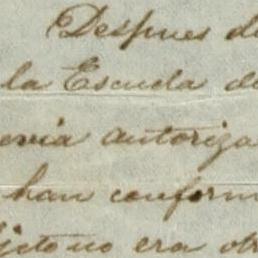 Despues d
la Escuela de
evia autoriza
han conform
jeto no era otr